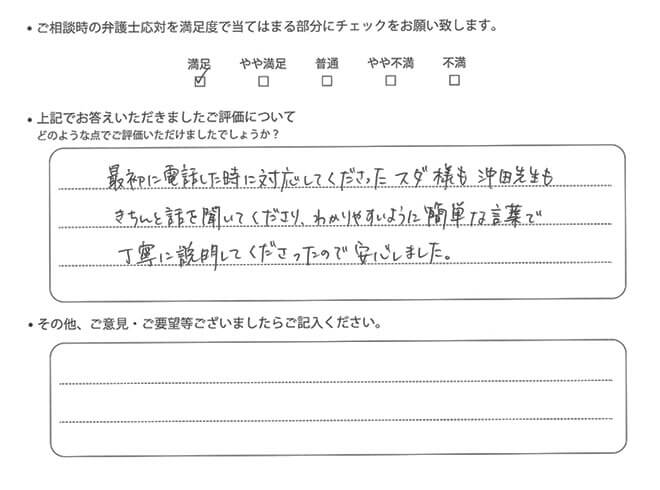 ・ご相談時の弁護士応対を満足度で当てはまる部分にチェックをお願い致します。
満足 やや満足 普通 やや不満 不満
☑ □ □ □ □
・上記でお答えいただきましたご評価について
どのような点でご評価いただけましたでしょうか？
最初に電話した時に対応してくださったスダ様も沖田先生も
きちんと話を聞いてくださり、わかりやすいように簡単な言葉で
丁寧に説明してくださったので安心しました。
・その他、ご意見・ご要望等ございましたらご記入ください。